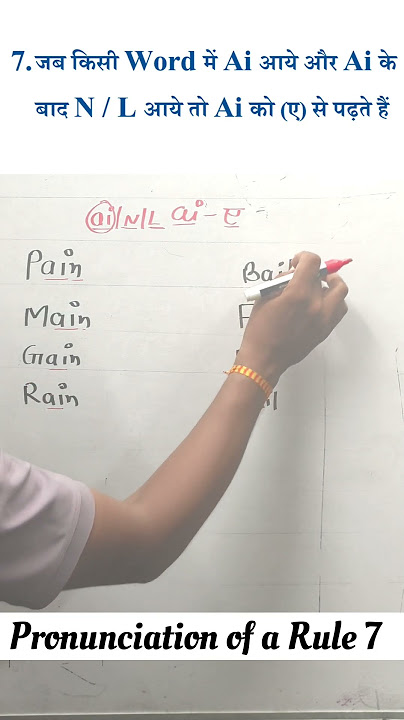 7. जब किसी Word में Ai आये और Ai के
बाद N / L आये तो Ai को (ए) से पढ़ते हैं
ai/N/L ai - ए
Pain
Main
Gain
Rain
Pronunciation of a Rule 7